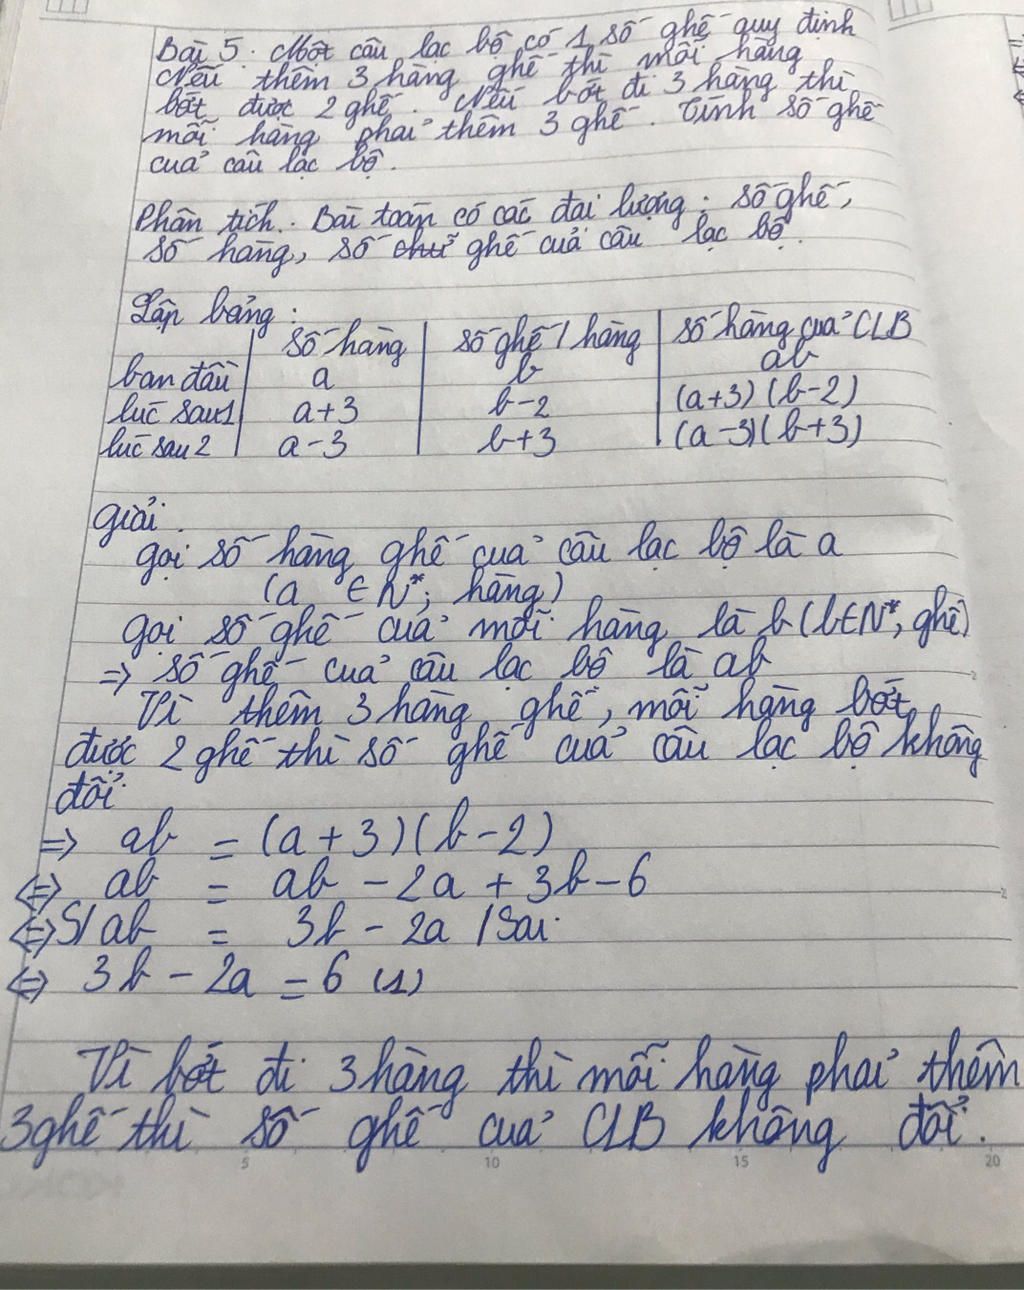 Bài 5. Một câu lạc bộ có 1 số ghế quy định
Nếu thêm 3 hàng ghế thì mỗi hàng
bớt được 2 ghế. Nếu bớt đi 3 hàng thì
mỗi hàng phải thêm 3 ghế. Tính số ghế
của câu lạc bộ.
Phân tích. Bài toán có các đại lượng: số ghế,
số hàng, số chữ ghế của câu lạc bộ.
Lập bảng:
số hàng số ghế / hàng số hàng của CLB
ban đầu a b ab
lúc sau 1 a+3 b-2 (a+3)(b-2)
lúc sau 2 a-3 b+3 (a-3)(b+3)
Giải.
gọi số hàng ghế của câu lạc bộ là a
(a ∈ N*; hàng)
gọi số ghế của mỗi hàng là b (b∈N*, ghế)
=> số ghế của câu lạc bộ là ab
Vì thêm 3 hàng ghế, mỗi hàng bớt
được 2 ghế thì số ghế của câu lạc bộ không
đổi
=> ab = (a+3)(b-2)
<=> ab = ab - 2a + 3b - 6
<=> S/ ab = 3b - 2a / Sai
<=> 3b - 2a = 6 (1)
Vì bớt đi 3 hàng thì mỗi hàng phải thêm
3 ghế thì số ghế của CLB không đổi.
5 10 15 20